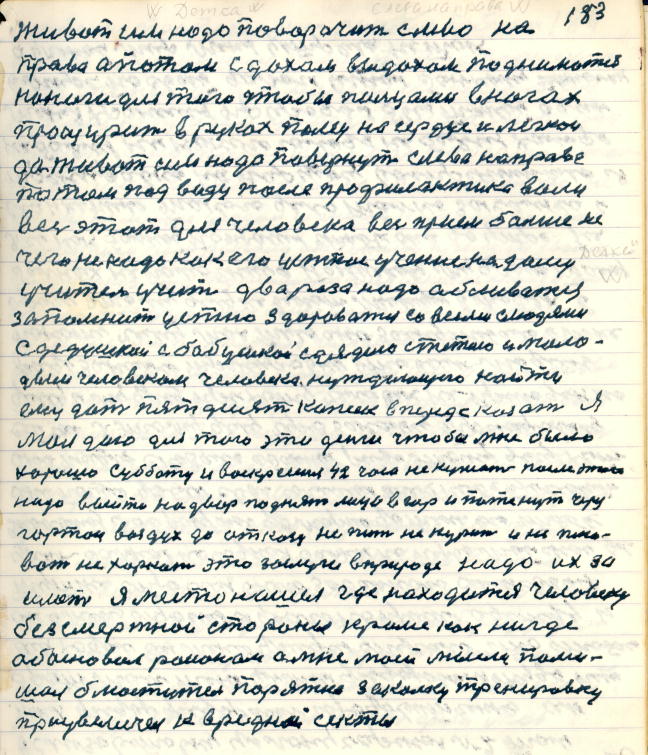 183
живот им надо поворочит слево на
права а потом с дохам выдохом подниматся
наноги для того чтобы палцами в ногах
в руках на сердце и легкои
да живот им надо повернут слева направо
потом под воду после профилактика воли
веч этот для человека вес прием болше не
чего не надо как его устное учение на дому
учител учит два роза надо обливатся
запомнит устно здороватся со всеми людями
с дедушкой с бабушкой с дядию с тетию и моло-
дым человеком человека нуждающего найти
ему дат пятдисят копеек вперед сказат я
Мои даю для того эти денги чтобы мне было
хорошо субботу и воскрения 42 часа не кушат после этого
надо выйти на двор поднят лицо в гор и потенут чрез
гортон воздух до отказу не пит не курит и не пле-
ват не харкат это заслуги в природе надо их за
имет я место нашел где находится человеку
безсмертной стороны кроме как нигде
обосновал районам а мне моей мысли
порятке закалку тренировку
к вредной секты